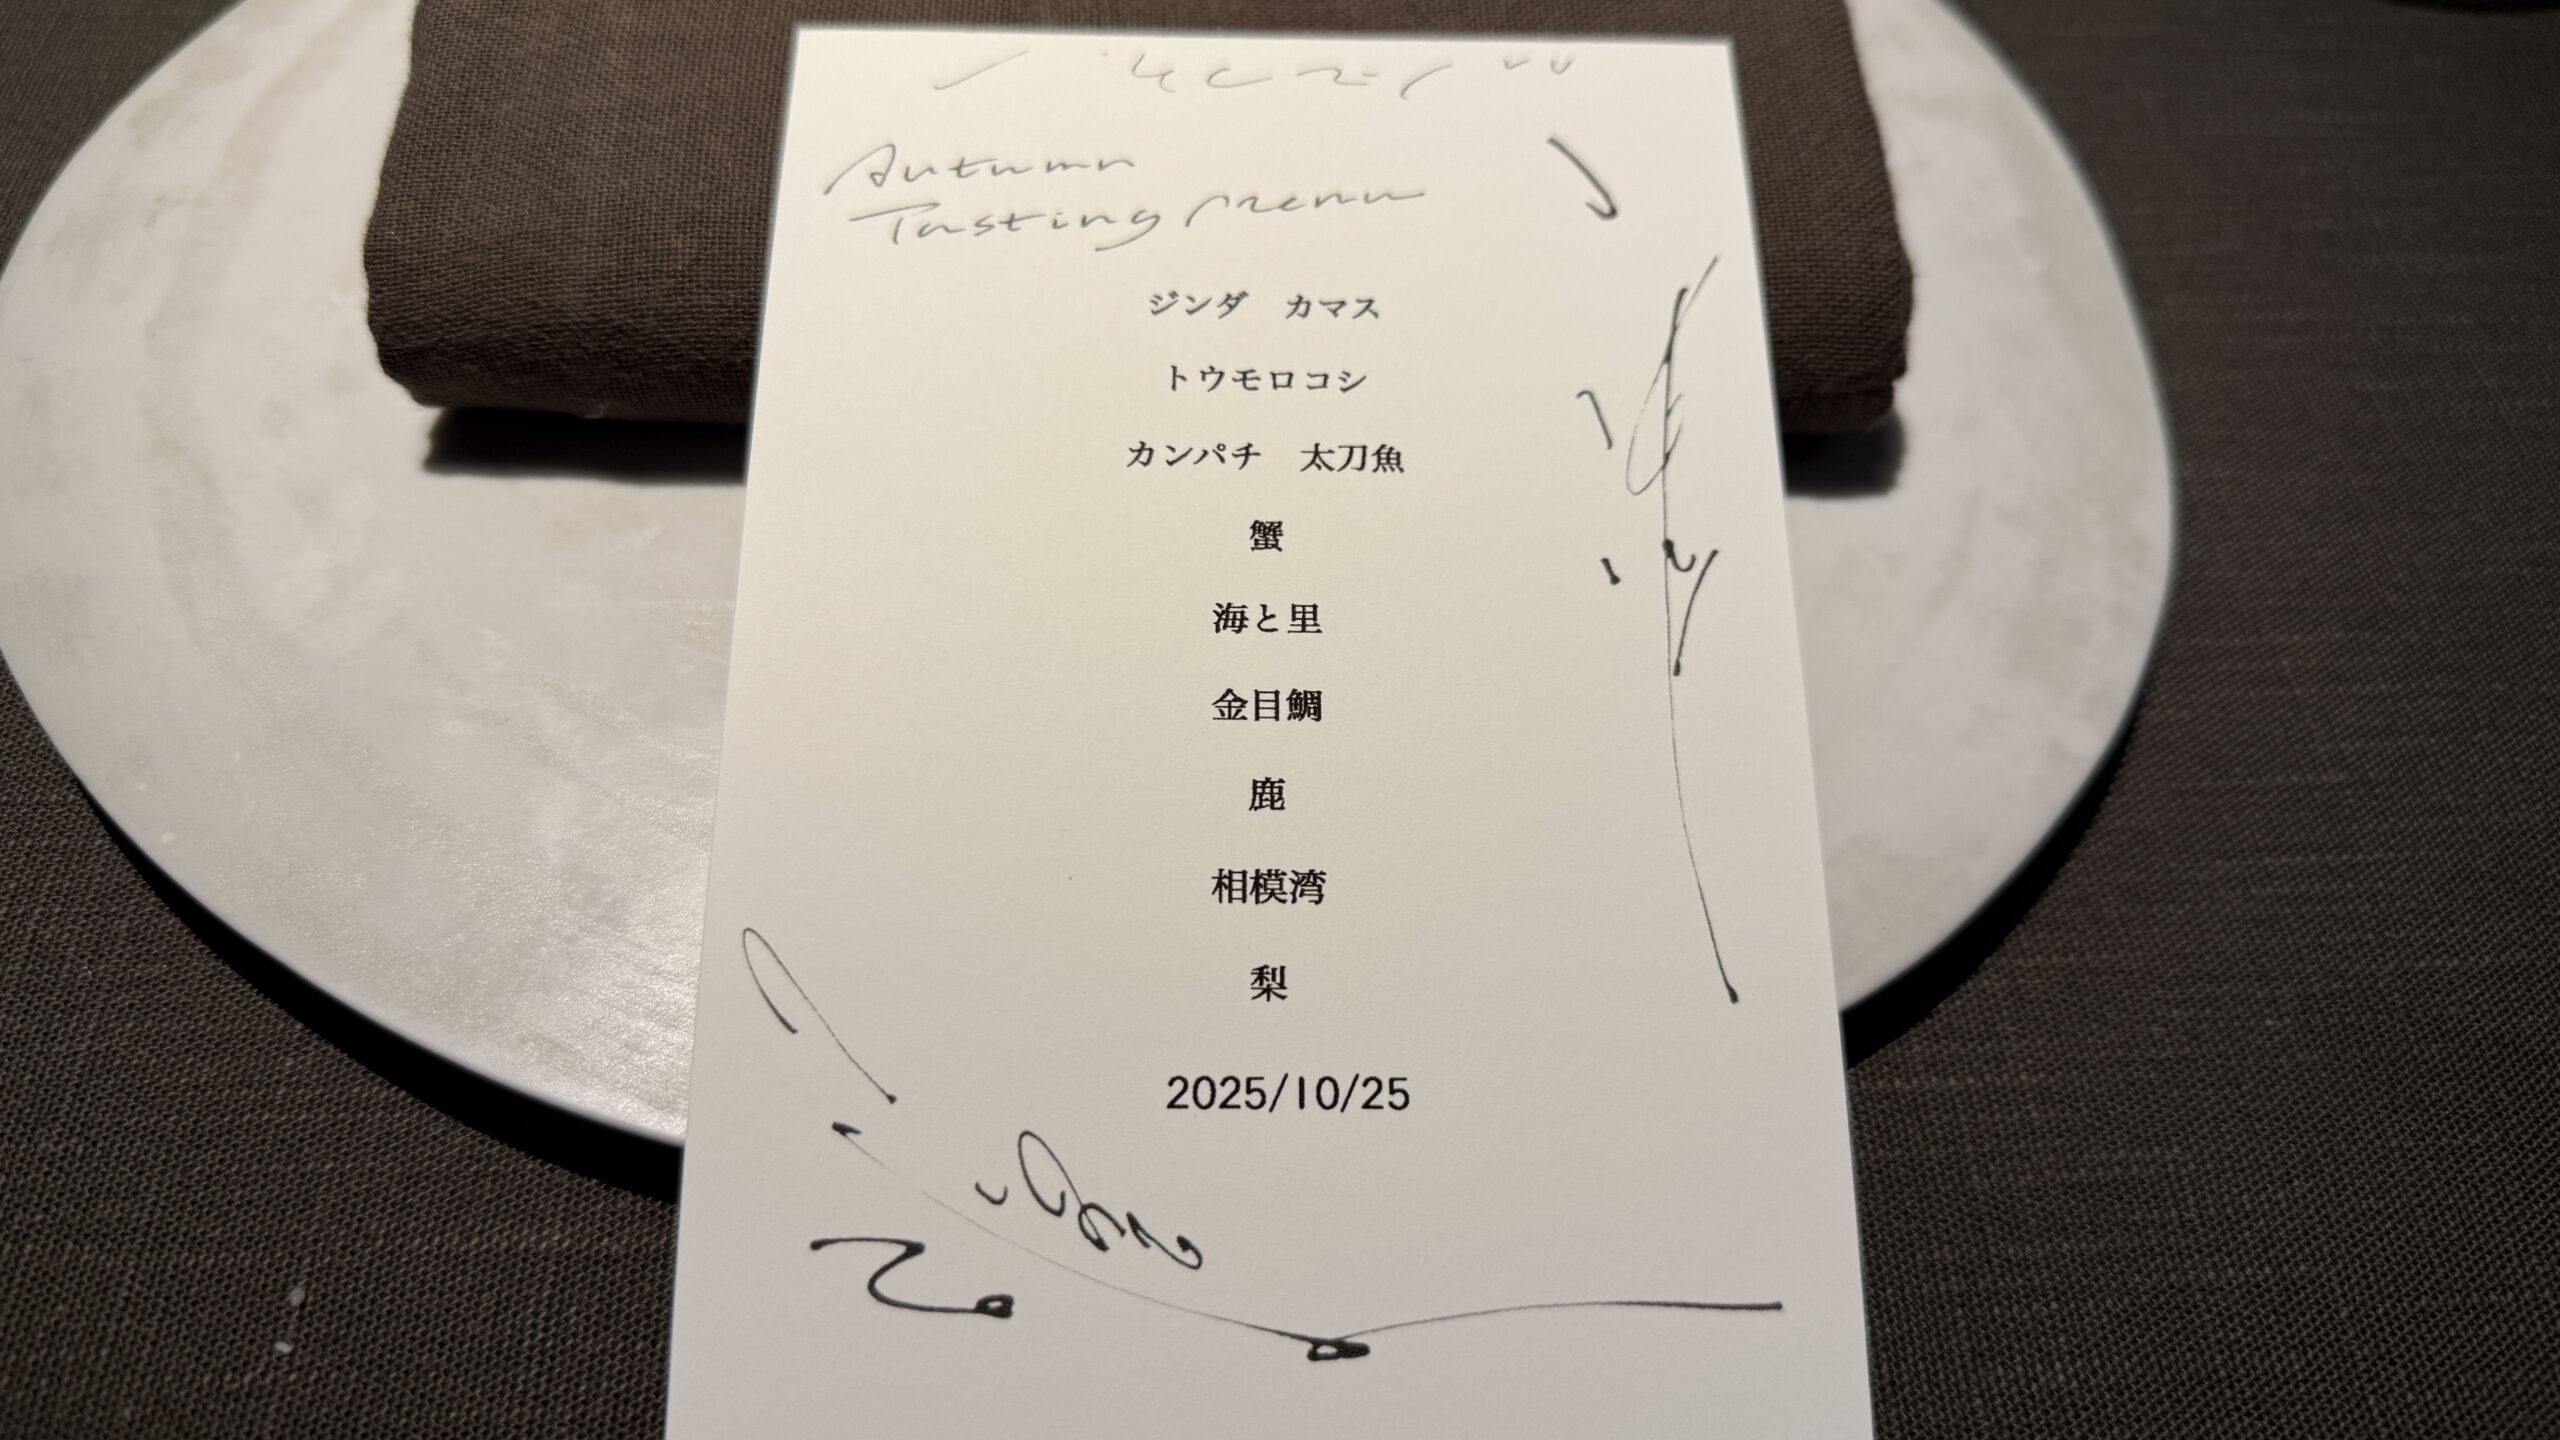 Autumn
Tasting menu
ジンダ　カマス
トウモロコシ
カンパチ　太刀魚
蟹
海と里
金目鯛
鹿
相模湾
梨
2025/10/25